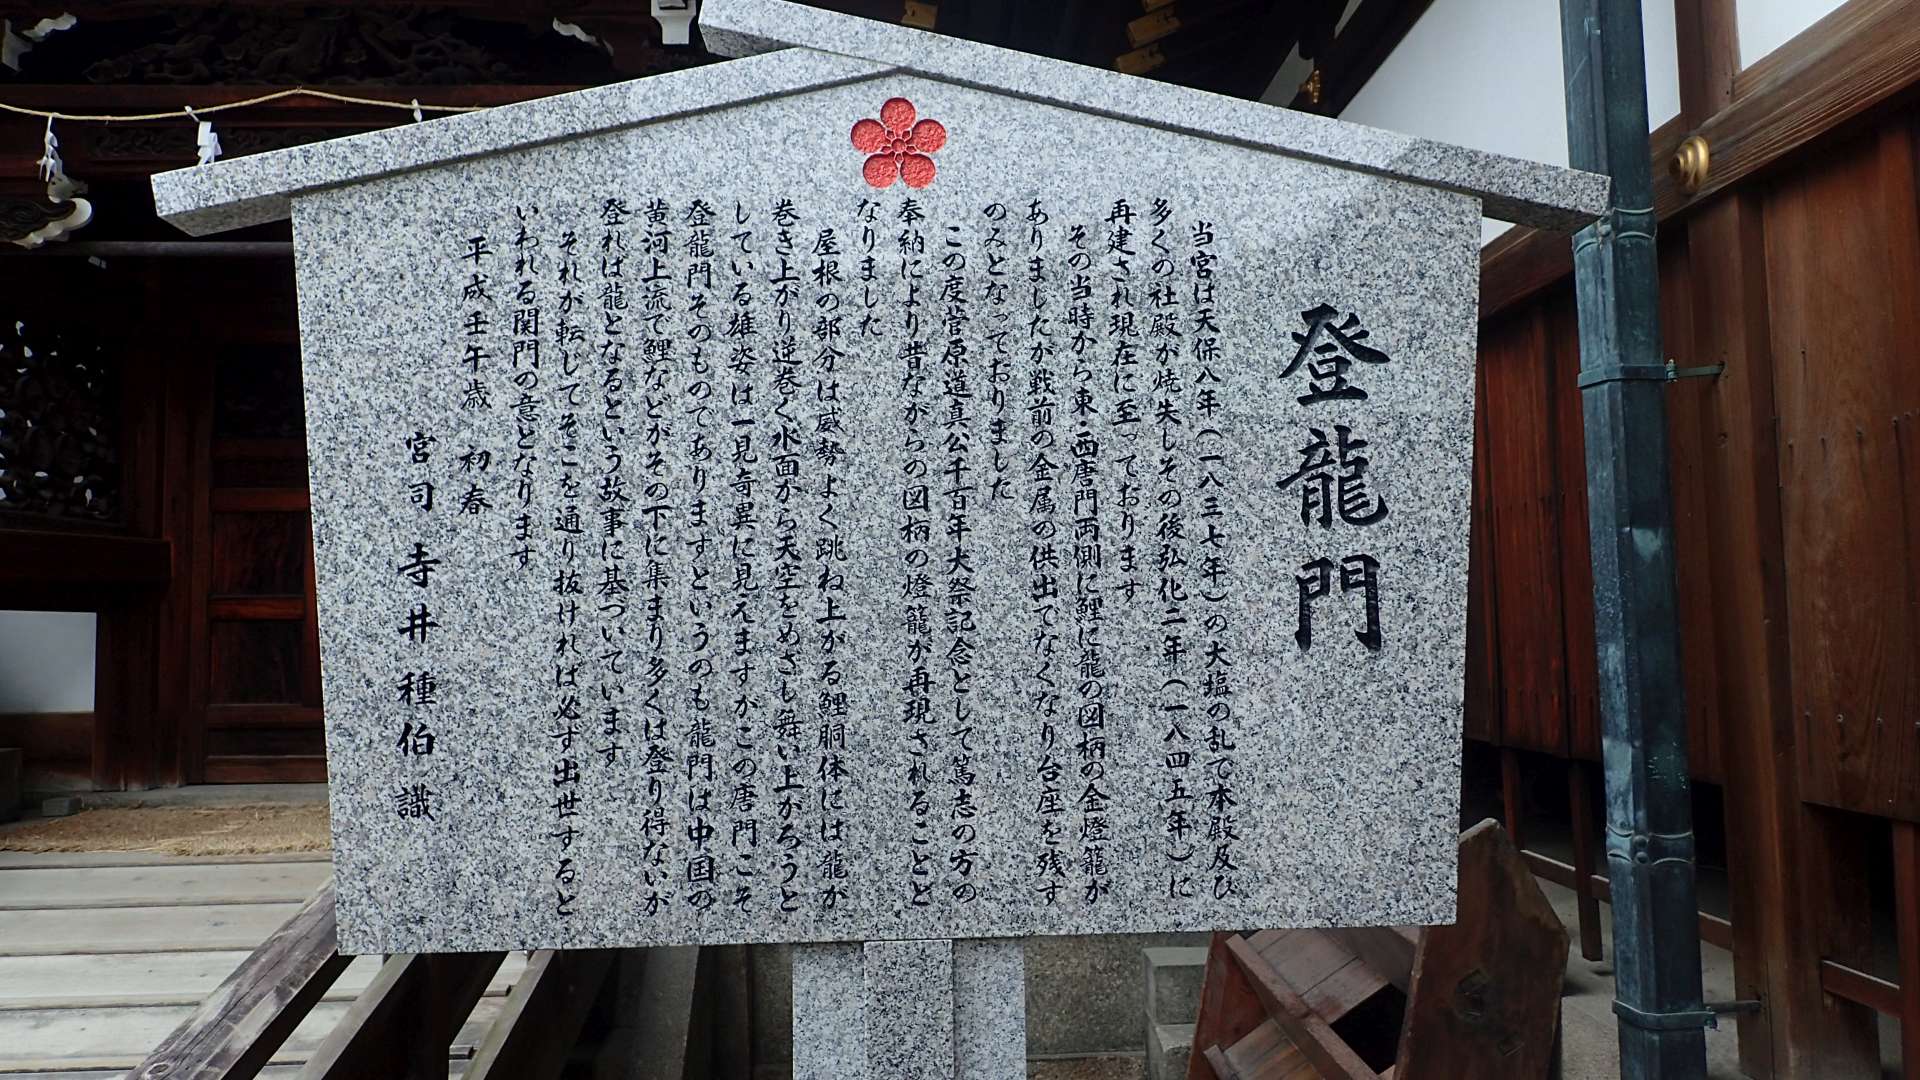 登龍門
当宮は天保八年(一八三七年)の大塩の乱で本殿及び
多くの社殿が焼失しその後弘化二年(一八四五年)に
再建され現在に至っております
その当時から東・西唐門両側に鯉に龍の図柄の金燈籠が
ありましたが戦前の金属の供出でなくなり台座を残す
のみとなっておりました
この度菅原道真公千百年大祭記念として篤志の方の
奉納により昔ながらの図柄の燈籠が再現されることと
なりました
屋根の部分は威勢よく跳ね上がる鯉胴体には龍が
巻き上がり逆巻く水面から天空をめざし舞い上がろうと
している雄姿は一見奇異に見えますがこの唐門こそ
登龍門そのものでありますというのも龍門は中国の
黄河上流で鯉などがその下に集まり多くは登り得ないが
登れば龍となるという故事に基づいています
それが転じてそこを通り抜ければ必ず出世すると
いわれる関門の意となります
平成壬午歳 初春
宮司 寺井種伯 識